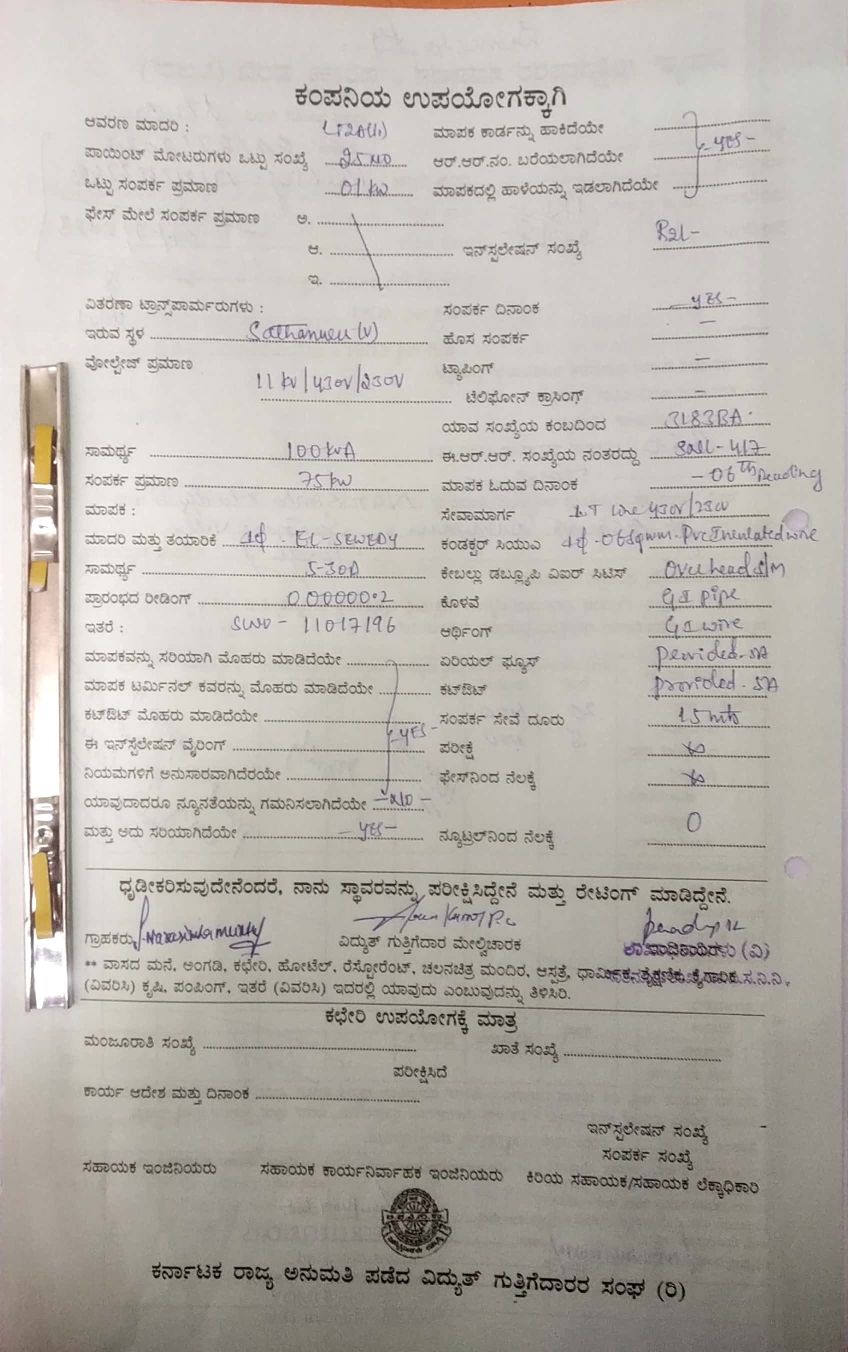 ಕಂಪನಿಯ ಉಪಯೋಗಕ್ಕಾಗಿ
ಆವರಣ ಮಾದರಿ : LT2A(ii) ಮಾಪಕ ಕಾರ್ಡನ್ನು ಹಾಕಿದೆಯೇ
ಪಾಯಿಂಟ್ ಮೋಟರುಗಳು ಒಟ್ಟು ಸಂಖ್ಯೆ 25 NO ಆರ್.ಆರ್.ನಂ. ಬರೆಯಲಾಗಿದೆಯೇ -YES-
ಒಟ್ಟು ಸಂಪರ್ಕ ಪ್ರಮಾಣ 01 KW ಮಾಪಕದಲ್ಲಿ ಹಾಳೆಯನ್ನು ಇಡಲಾಗಿದೆಯೇ
ಫೇಸ್ ಮೇಲೆ ಸಂಪರ್ಕ ಪ್ರಮಾಣ ಅ.
ಆ. ಇನ್‌ಸ್ಪಲೇಷನ್ ಸಂಖ್ಯೆ
ಇ.
ವಿತರಣಾ ಟ್ರಾನ್ಸ್‌ಪಾರ್ಮರುಗಳು : ಸಂಪರ್ಕ ದಿನಾಂಕ -YES-
ಇರುವ ಸ್ಥಳ Sathanuru (V) ಹೊಸ ಸಂಪರ್ಕ -
ವೋಲ್ಟೇಜ್ ಪ್ರಮಾಣ ಟ್ಯಾಪಿಂಗ್ -
11 KV/430V/230V ಟೆಲಿಫೋನ್ ಕ್ರಾಸಿಂಗ್ -
ಯಾವ ಸಂಖ್ಯೆಯ ಕಂಬದಿಂದ 3183BA
ಸಾಮರ್ಥ್ಯ 100 KVA ಈ.ಆರ್.ಆರ್. ಸಂಖ್ಯೆಯ ನಂತರದ್ದು
ಸಂಪರ್ಕ ಪ್ರಮಾಣ 75 KW ಮಾಪಕ ಓದುವ ದಿನಾಂಕ - 06th Reading
ಮಾಪಕ : ಸೇವಾಮಾರ್ಗ LT Line 430V/230V
ಮಾದರಿ ಮತ್ತು ತಯಾರಿಕೆ 1ϕ - EL-SEWEDY ಕಂಡಕ್ಟರ್ ಸಿಯುಎ 1ϕ - 06Sqmm - Pvc Insulated wire
ಸಾಮರ್ಥ್ಯ 5-30A ಕೇಬಲ್ಲು ಡಬ್ಲ್ಯೂಪಿ ವಿಐರ್ ಸಿಟಿಸ್ Overhead S/M
ಪ್ರಾರಂಭದ ರೀಡಿಂಗ್ 000000.2 ಕೊಳವೆ GI pipe
ಇತರೆ : SWD - 11017196 ಆರ್ಥಿಂಗ್ GI wire
ಮಾಪಕವನ್ನು ಸರಿಯಾಗಿ ಮೊಹರು ಮಾಡಿದೆಯೇ ಏರಿಯಲ್ ಫ್ಯೂಸ್ provided - 5A
ಮಾಪಕ ಟರ್ಮಿನಲ್ ಕವರನ್ನು ಮೊಹರು ಮಾಡಿದೆಯೇ ಕಟ್‌ಔಟ್ provided - 5A
ಕಟ್‌ಔಟ್ ಮೊಹರು ಮಾಡಿದೆಯೇ ಸಂಪರ್ಕ ಸೇವೆ ದೂರು 15 mts
ಈ ಇನ್‌ಸ್ಪೆಲೇಷನ್ ವೈರಿಂಗ್ -YES- ಪರೀಕ್ಷೆ
ನಿಯಮಗಳಿಗೆ ಅನುಸಾರವಾಗಿದೆರಯೇ ಫೇಸ್‌ನಿಂದ ನೆಲಕ್ಕೆ
ಯಾವುದಾದರೂ ನ್ಯೂನತೆಯನ್ನು ಗಮನಿಸಲಾಗಿದೆಯೇ -NO-
ಮತ್ತು ಅದು ಸರಿಯಾಗಿದೆಯೇ -YES- ನ್ಯೂಟ್ರಲ್‌ನಿಂದ ನೆಲಕ್ಕೆ 0
ಧೃಡೀಕರಿಸುವುದೇನೆಂದರೆ, ನಾನು ಸ್ಥಾವರವನ್ನು ಪರೀಕ್ಷಿಸಿದ್ದೇನೆ ಮತ್ತು ರೇಟಿಂಗ್ ಮಾಡಿದ್ದೇನೆ.
ಗ್ರಾಹಕರು ವಿದ್ಯುತ್ ಗುತ್ತಿಗೆದಾರ ಮೇಲ್ವಿಚಾರಕ
** ವಾಸದ ಮನೆ, ಅಂಗಡಿ, ಕಛೇರಿ, ಹೋಟೆಲ್, ರೆಸ್ಟೋರೆಂಟ್, ಚಲನಚಿತ್ರ ಮಂದಿರ, ಆಸ್ಪತ್ರೆ,
(ವಿವರಿಸಿ) ಕೃಷಿ, ಪಂಪಿಂಗ್, ಇತರೆ (ವಿವರಿಸಿ) ಇದರಲ್ಲಿ ಯಾವುದು ಎಂಬುವುದನ್ನು ತಿಳಿಸಿರಿ.
ಕಛೇರಿ ಉಪಯೋಗಕ್ಕೆ ಮಾತ್ರ
ಮಂಜೂರಾತಿ ಸಂಖ್ಯೆ ಖಾತೆ ಸಂಖ್ಯೆ
ಪರೀಕ್ಷಿಸಿದೆ
ಕಾರ್ಯ ಆದೇಶ ಮತ್ತು ದಿನಾಂಕ
ಇನ್‌ಸ್ಪಲೇಷನ್ ಸಂಖ್ಯೆ
ಸಂಪರ್ಕ ಸಂಖ್ಯೆ
ಸಹಾಯಕ ಇಂಜಿನಿಯರು ಸಹಾಯಕ ಕಾರ್ಯನಿರ್ವಾಹಕ ಇಂಜಿನಿಯರು ಕಿರಿಯ ಸಹಾಯಕ/ಸಹಾಯಕ ಲೆಕ್ಕಾಧಿಕಾರಿ
ಕರ್ನಾಟಕ ರಾಜ್ಯ ಅನುಮತಿ ಪಡೆದ ವಿದ್ಯುತ್ ಗುತ್ತಿಗೆದಾರರ ಸಂಘ (ರಿ)